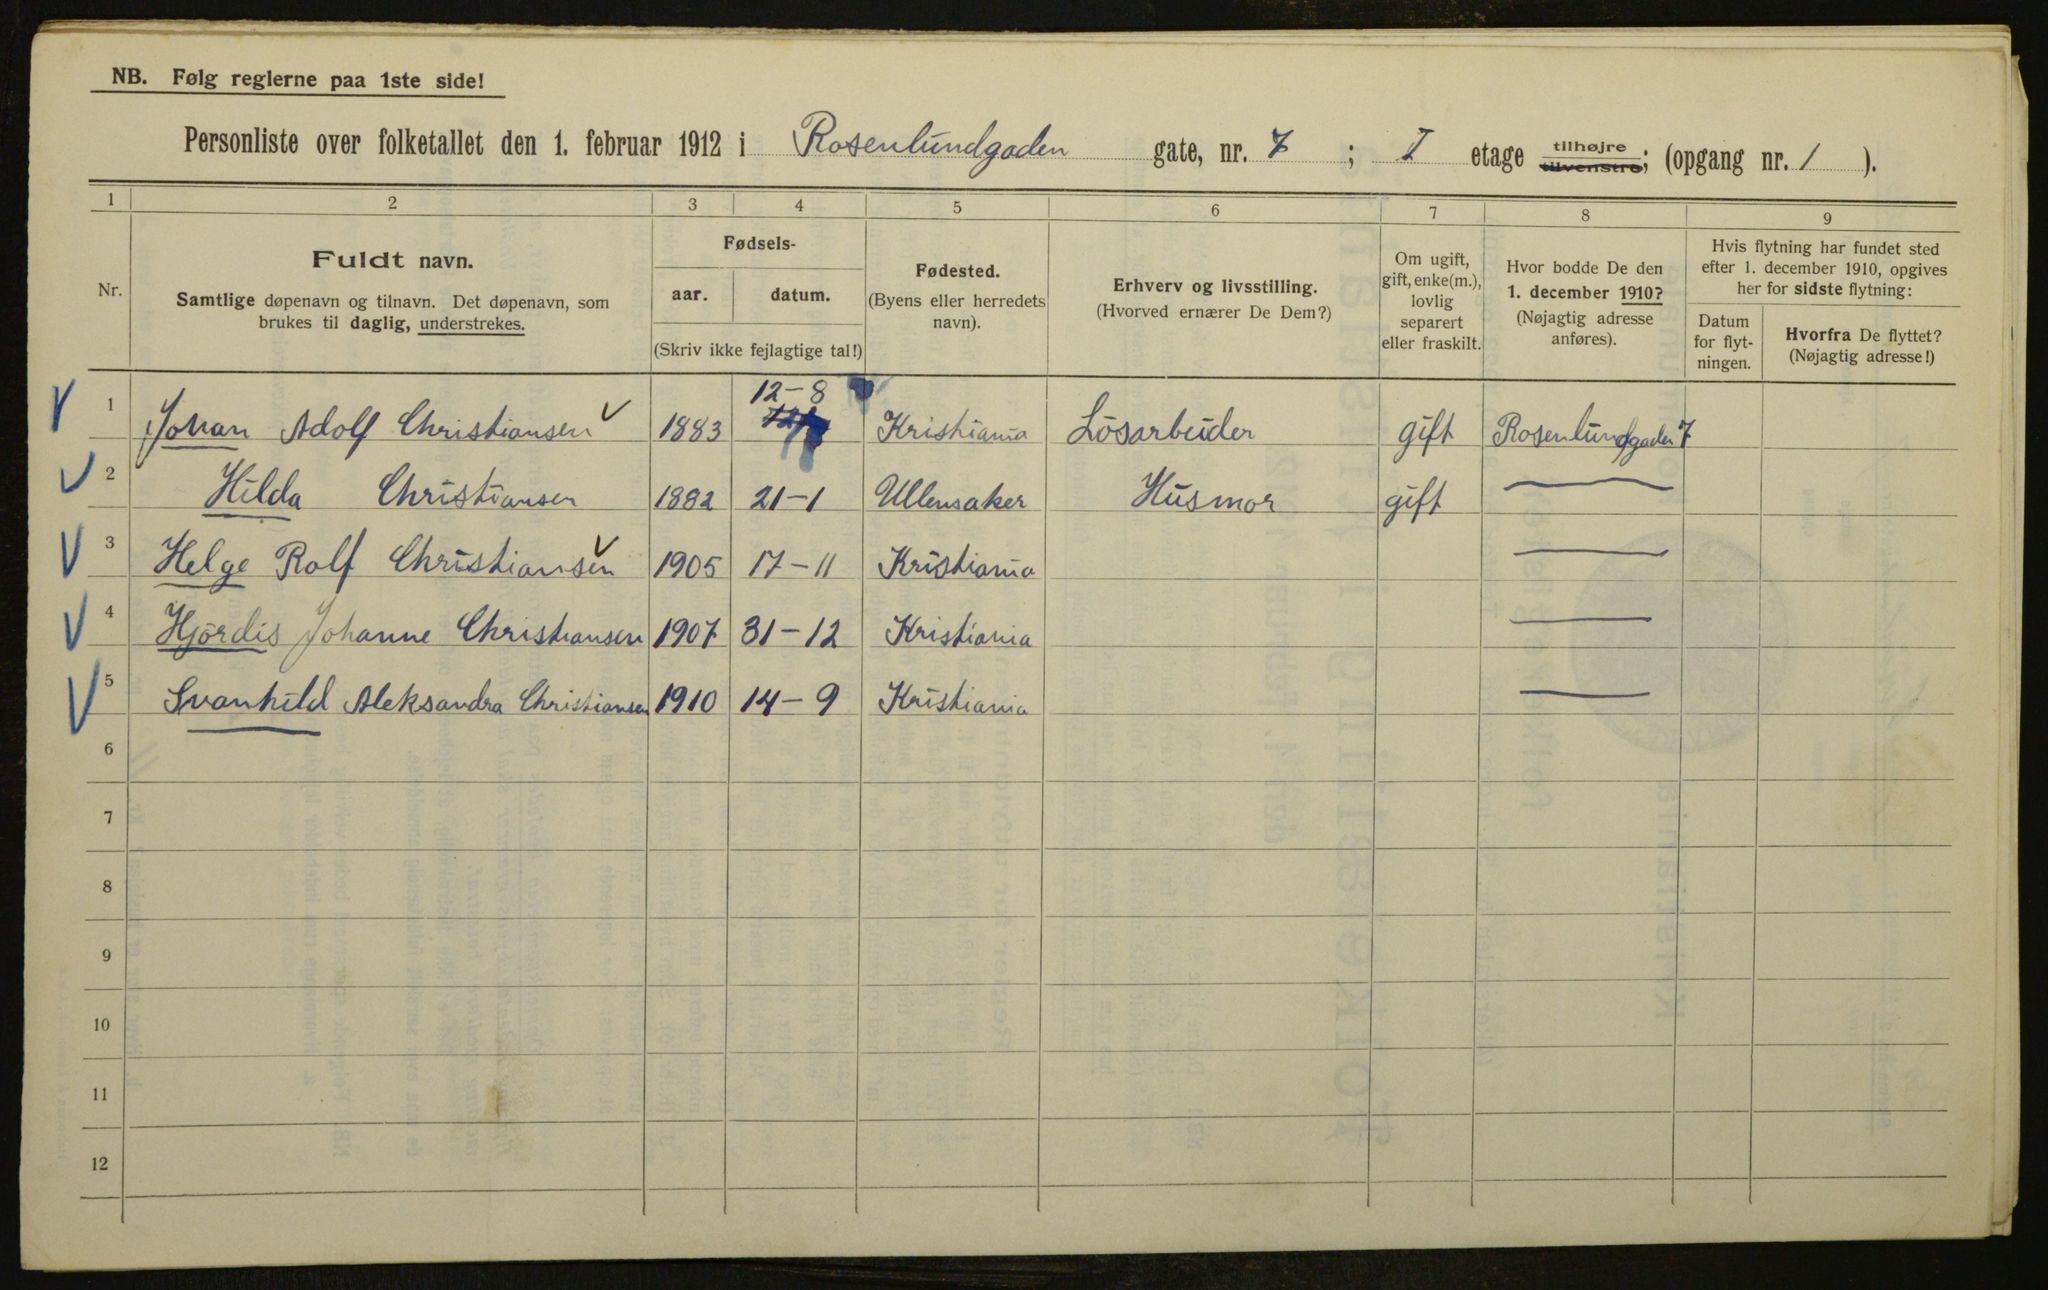 NB. Følg reglerne paa 1ste side!
Personliste over folketallet den 1. februar 1912 i Rosenlundgaden gate, nr. 7 ; I etage tilhøjre tilvenstre; (opgang nr. 1 ).
1 2 3 4 5 6 7 8 9
Nr.
Fuldt navn.
Samtlige døpenavn og tilnavn. Det døpenavn, som
brukes til daglig, understrekes.
Fødsels-
aar. datum.
(Skriv ikke fejlagtige tal!)
Fødested.
(Byens eller herredets
navn).
Erhverv og livsstilling.
(Hvorved ernærer De Dem?)
Om ugift,
gift, enke(m.),
lovlig
separert
eller fraskilt.
Hvor bodde De den
1. december 1910?
(Nøjagtig adresse
anføres).
Hvis flytning har fundet sted
efter 1. december 1910, opgives
her for sidste flytning:
Datum
for flyt-
ningen.
Hvorfra De flyttet?
(Nøjagtig adresse!)
1 Johan Adolf Christiansen 1883 12-8 Kristiania Lösarbeider gift Rosenlundgaden 7
2 Hilda Christiansen 1882 21-1 Ullensaker Husmor gift —
3 Helge Rolf Christiansen 1905 17-11 Kristiania —
4 Hjördis Johanne Christiansen 1907 31-12 Kristiania —
5 Svanhild Aleksandra Christiansen 1910 14-9 Kristiania —
6
7
8
9
10
11
12